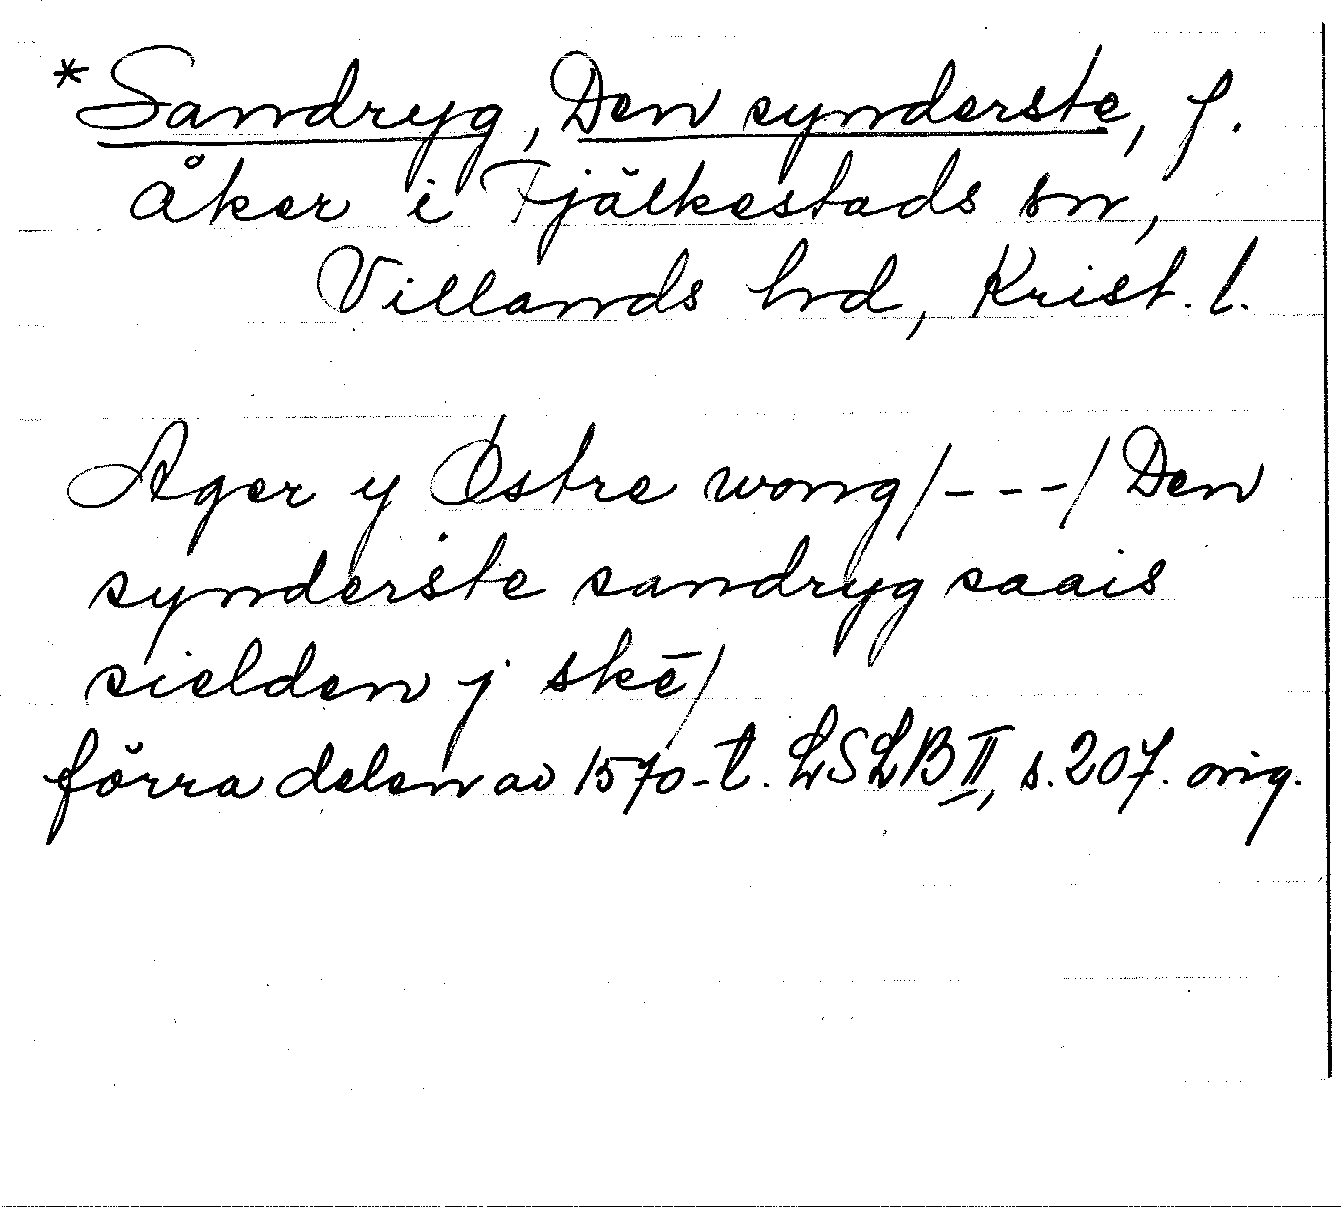 *Sandryg, Den synderste, f.
åker i Fjälkestads sn,
Villands hrd, Krist. l.
Ager y Østre wong/---/Den
synderste sandryg saais
sielden j skē/
förra delen av 1570-t. LSLB II, s. 207. orig.